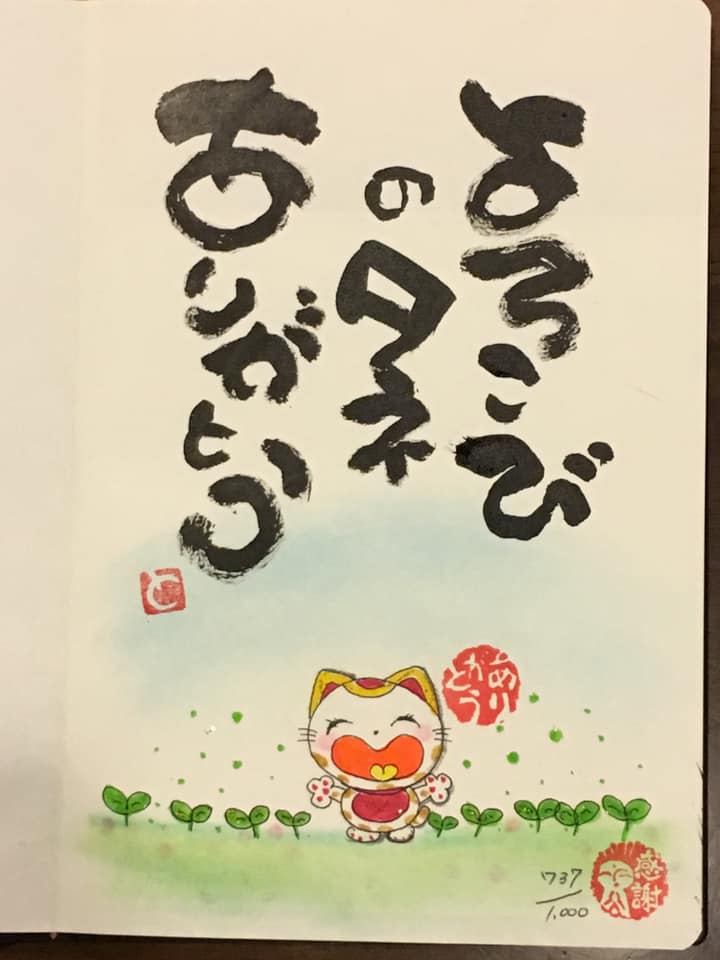 よろこび
のタネ
ありがとう
と
ありがとう
737/1,000
感謝